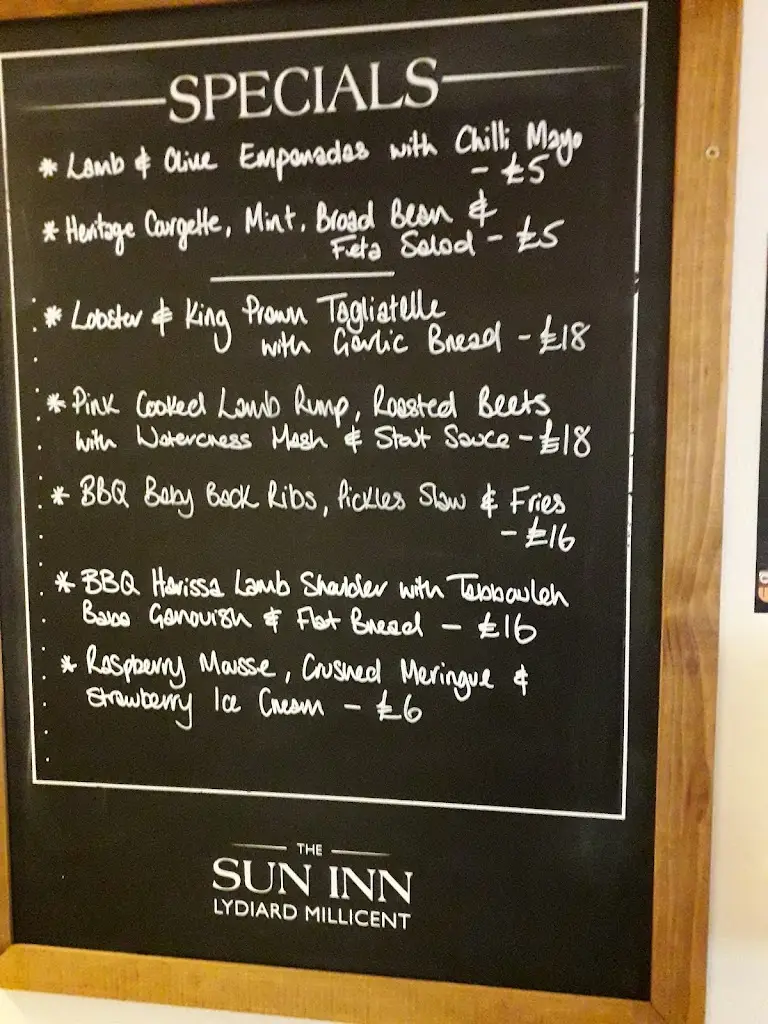 SPECIALS
* Lamb & Olive Empanadas with Chilli Mayo
- £5
* Heritage Corgette, Mint, Broad Bean &
Feta Salad - £5
* Lobster & King Prawn Tagliatelle
with Garlic Bread - £18
* Pink Cooked Lamb Rump, Roasted Beets
with Watercress Mash & Stout Sauce - £18
* BBQ Baby Back Ribs, Pickles Slaw & Fries
- £16
* BBQ Harissa Lamb Shoulder with Tabbouleh
Baba Ganoush & Flat Bread - £16
* Raspberry Mousse, Crushed Meringue &
Strawberry Ice Cream - £6
THE
SUN INN
LYDIARD MILLICENT